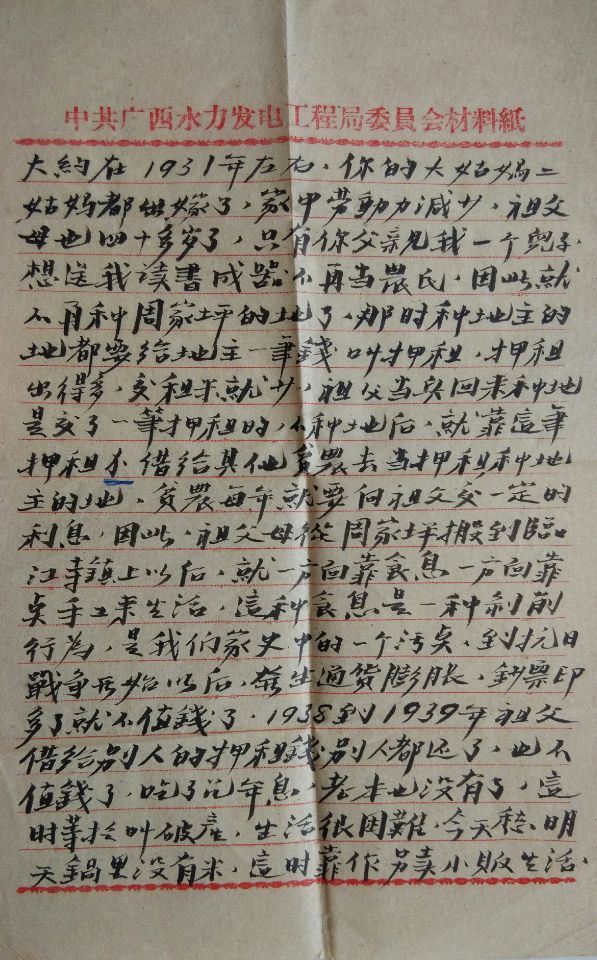 中共广西水力发电工程局委員会材料紙
大約在1931年左右，你的大姑媽二
姑媽都出嫁了，家中劳動力減少，祖父
母也四十多岁了，只有你父親我一个兒子，
想送我读書成器不再当農民，因此就
不再种周家坪的地了，那时种地主的
地都要给地主一筆錢叫押租，押租
出得多，交租米就少，祖父当年回来种地
是交了一筆押租的，不种地后，就靠這筆
押租 借给其他貧農去当押租种地
主的地，貧農每年就要向祖父交一定的
利息，因此，祖父母從周家坪搬到臨
江寺鎮上以后，就一方面靠食息一方面靠
点手工来生活，這种食息是一种剝削
行為，是我们家史中的一个污点，到抗日
戰争开始以后，發生通货膨脹，鈔票印
多了就不值錢了，1938到1939年祖父
借给别人的押租錢别人都还了，也不
值錢了，吃了几年息，老本也没有了，這
时等於叫破產，生活很困難，今天愁明
天鍋里没有米，這时靠作 卖小販生活，